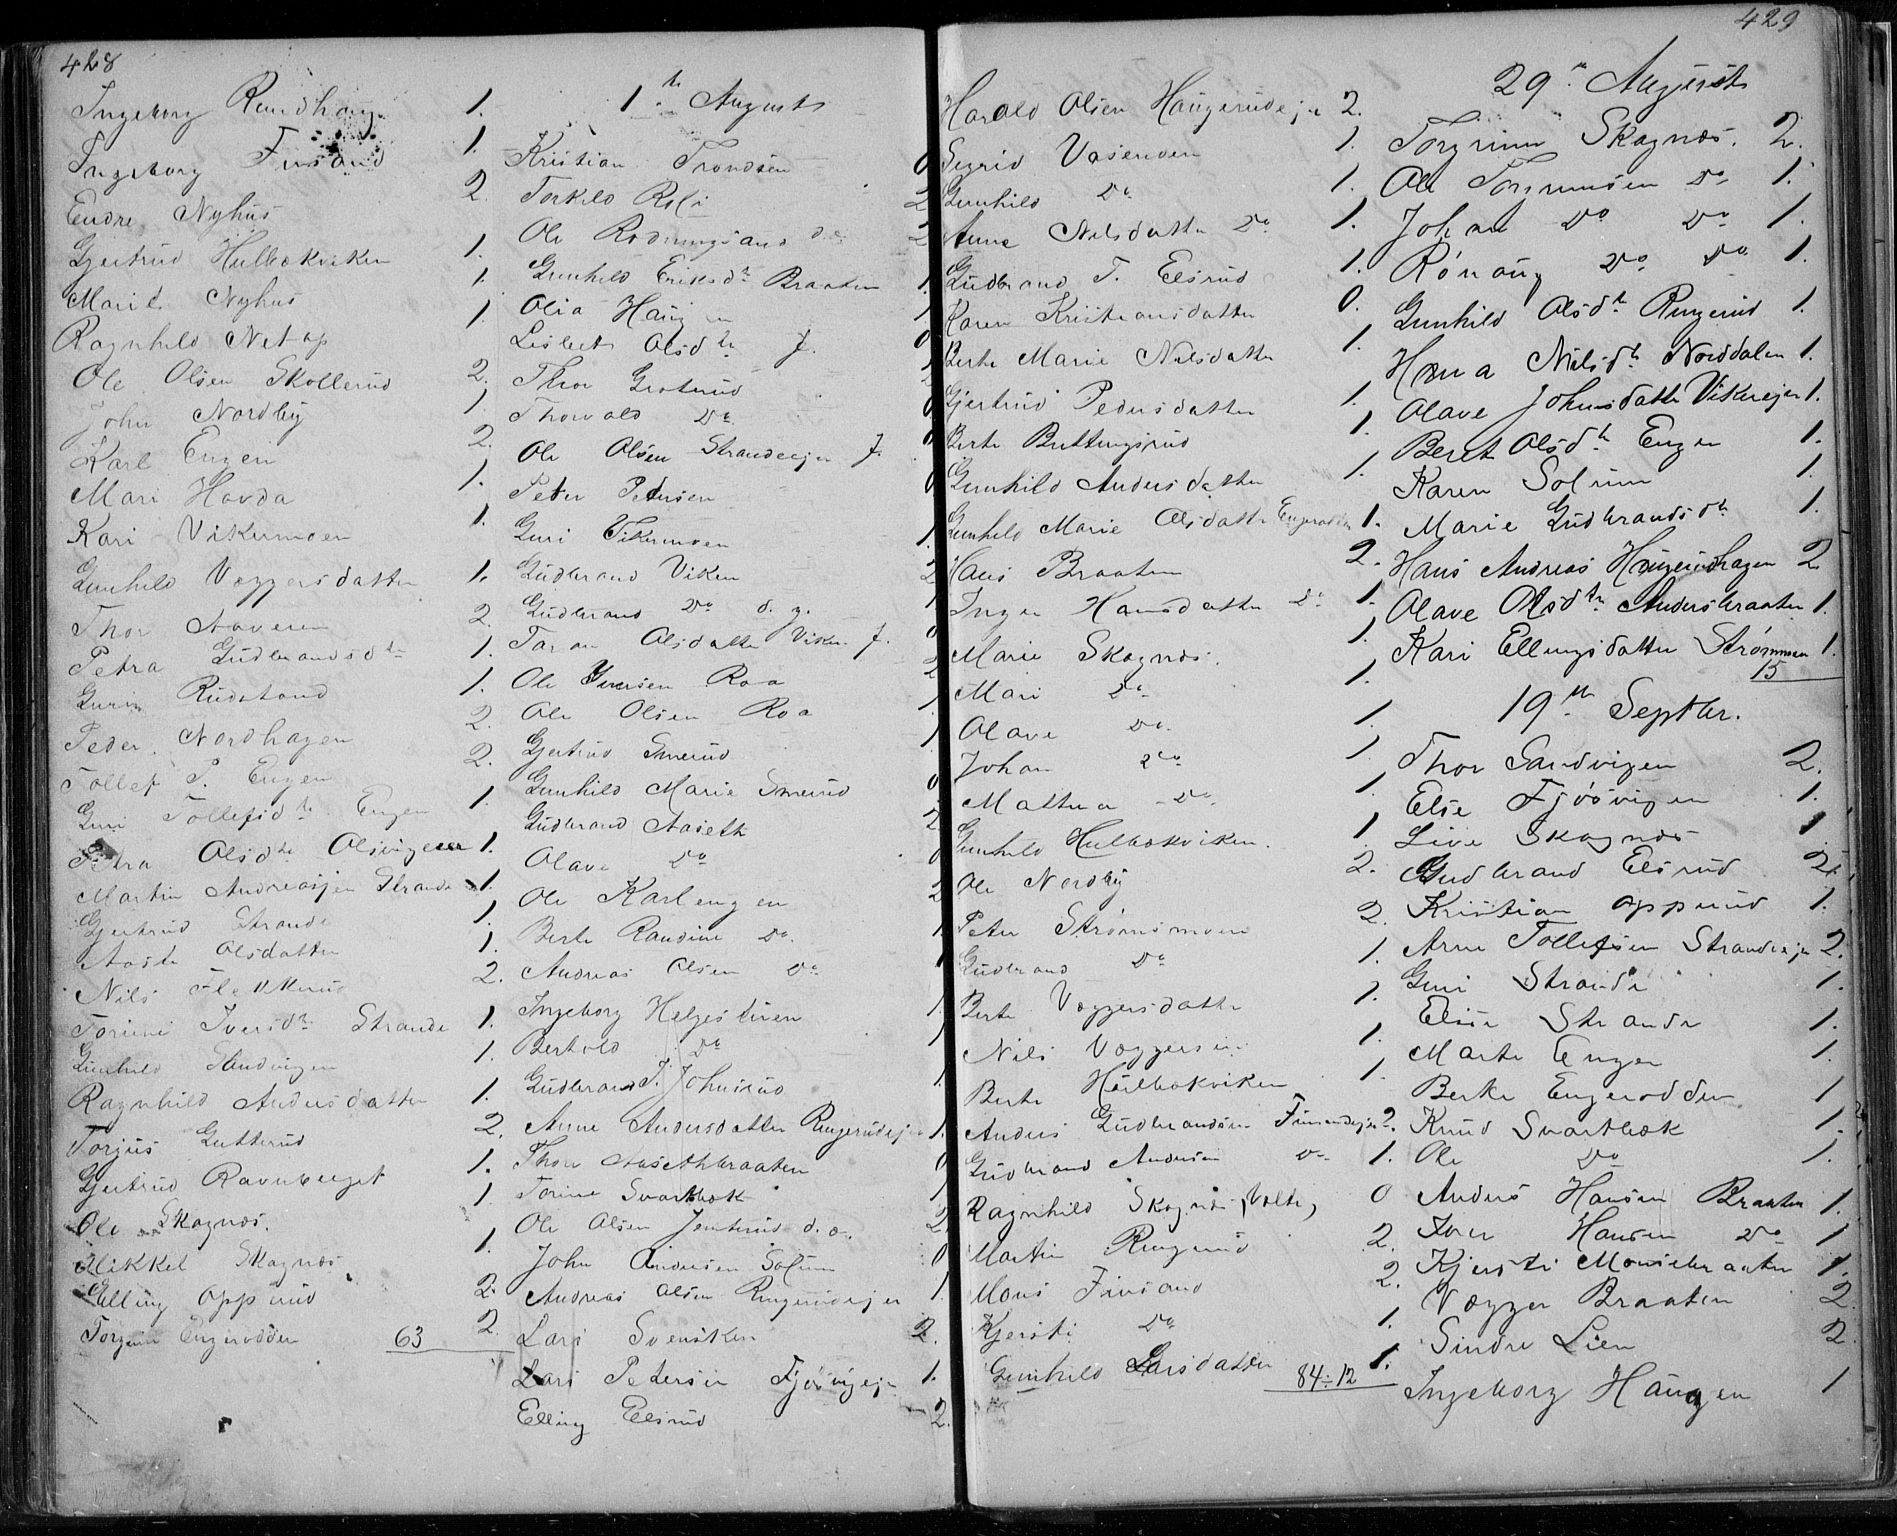 428
Ingeborg Rundhaug 1.
Ingeborg Finsand 1.
Endre Nyhus 2.
Gjertrud Hulbækviken 1.
Marit Nyhus 1.
Ragnhild Netop 1.
Ole Olsen Skollerud 2.
John Nordby 1.
Karl Engen 2.
Mari Hovda 1.
Kari Vikermoen 1.
Gunhild Væggersdatter 1.
Thor Aaveren 2.
Petra Gudbrandsdtr 1.
Guri Rudstand 1.
Peder Nordhagen 2.
Tollef P. Engen 2.
Guri Tollefsdtr Engen 1.
Petra Olsdtr Olsvigeier 1.
Martin Andreasjen Strande 1.
Gjertrud Strande 1.
Aaste Olsdatter 1.
Nils 2.
Torine Iversdtr Strande 1.
Gunhild Sandvigen 1.
Ragnhild Andersdatter 1.
Torjus Gutterud 2.
Gjertrud Ravnberget 1.
Ole Skagnæs. 1.
Mikkel Skagnæs 1.
Elling Opperud 2.
Torgrim Engerodden 2.
63
1te August
Kristian Trondsen 0
Torkild Roli 2
Ole Rodningsand 2
Gunhild Eriksdtr Braaten 1
Olia Haugen 1
Lisbet Olsdtr f. 0
Thor Grøterud 2
Thorvald Do 0
Ole Olsen Strandeejer f. 0
Peter Petersen 0
Guri Vikermoen 1.
Gudbrand Viken 2
Gudbrand Do d.y. 1
Taran Olsdatter Viken f. 0
Ole Iversen Roa 2
Ole Olsen Roa 1
Gjertrud Smerud 1
Gunhild Marie Smerud 0
Gudbrand Aaseth 2
Olave Do 0
Ole Karlengen 2
Berte Randine Do. 1
Andreas Olsen Do 1
Ingeborg Helgesteien 1
Berthold Do 1
Gudbrand T. Johnsrud 1
Anne Andersdatter Ringerudejer 1.
Thor Aasethbraaten 0
Torine Svartbæk 1
Ole Olsen Jenserud d.æ. 2
John Andersen Solum 0
Andreas Olsen Ringerudejer 1
Lars Svensken 2.
Lars Petersen Fjøsvigejer 1.
Elling Elsrud 2.
429
Harald Olsen Haugerudejer 2.
Sigrid Vasenden 1.
Gunhild Do 1.
Anne Nilsdatter Do 1.
Gudbrand T. Elsrud 1.
Karen Kristiansdatter 0.
Berte Marie Nilsdatter 1.
Gjertrud Pedersdatter 1.
Berte Buttingsrud 1.
Gunhild Andersdatter 1.
Gunhild Marie Olsdatter Engerodden 1.
Hans Braaten 2.
Inger Hansdatter Do 1.
Marie Skagnæs. 1.
Mari Do 1.
Olave Do. 1.
Johan Do 1.
Mathea Do. 1.
Gunhild Hulbækviken. 1.
Ole Nordby 2.
Peter Strømsmoen 2.
Gudbrand Do 1.
Berte Væggersdatter 1.
Nils Væggersen 1.
Berte Hulbækviken 1.
Anders Gudbrandsen Finsandejer 2.
Gudbrand Andersen Do 1.
Ragnhild Skagnæs 0
Martin Ringerud 2.
Mons Finsand 2.
Kjersti Do 1.
Gunhild Larsdatter 1.
84÷12
29de August
Torgrim Skagnæs. 2.
Ole Torgrimsen Do 1.
Johan Do Do 1.
Rønnaug Do Do 1.
Gunhild Olsdtr Ringerud 1.
Anna Nilsdtr Norddalen 1.
Olave Johnsdatter Vikerejer 1.
Beret Olsdtr Engen 1.
Karen Solum 1.
Marie Gudbrandsdtr 1.
Hans Andreas Haugerudhagen 2
Olave Olsdtr Andersbraaten 1.
Kari Ellingsdatter Strømmen 1.
15
19de Septbr.
Thor Sandvigen 2.
Else Fjøsvigen 1.
Live Skagnæs 1.
Gudbrand Elsrud 2.
Kristian Opperud 1.
Arne Tollefsen Strandeejer 2.
Guri Strande 1.
Elise Strande 1.
Marte Engen 1.
Berte Engerodden 1
Knud Svartbæk 1.
Ole Do 1.
Anders Hansen Braaten 1.
Iver Hansen Do 1
Kjersti Monsebraaten 1.
Vægger Braaten 2
Sindre Lien 2
Ingeborg Haugen 1